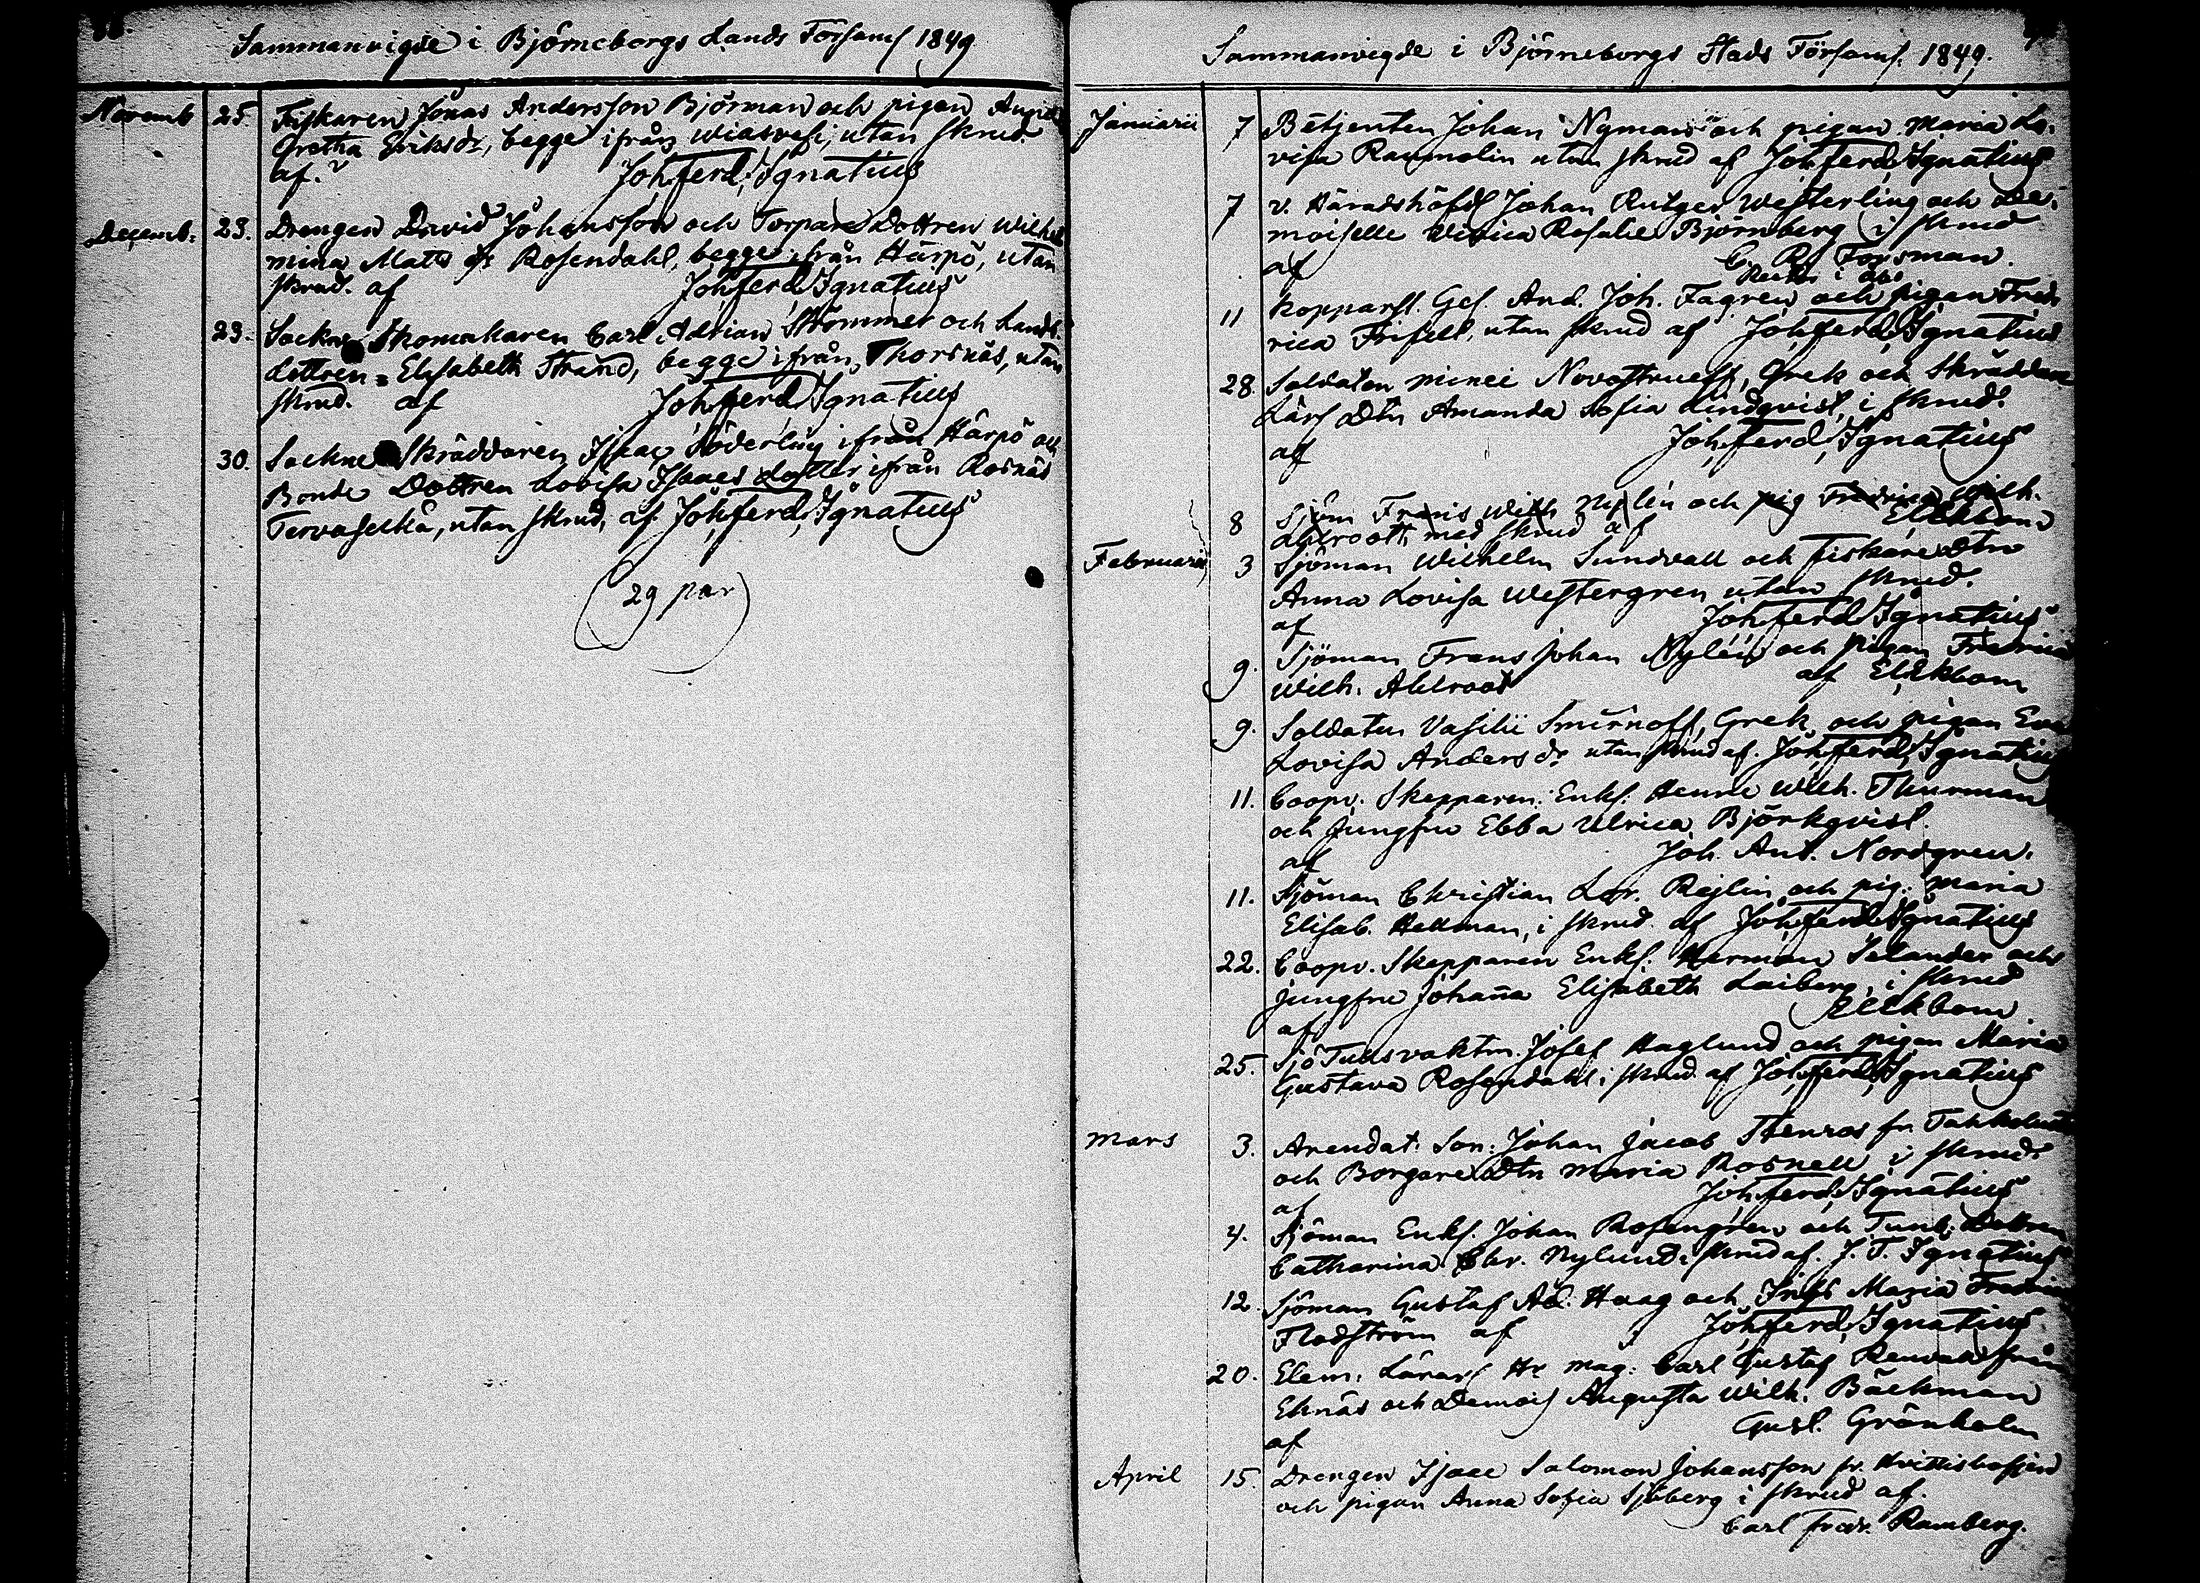 Sammanvigde i Björneborgs Lands Församl 1849
Novemb 25. Fiskaren Jonas Andersson Björman och pigan
Gretha Eriksdr, begge ifrån Wiasvesi, utan skrud
af. Joh. Ferd. Ignatius
Decemb. 23. Drengen David Johansson och Torpare Dottren Wilhel
mina Matts dr Rosendahl, begge ifrån Härpö, utan
skrud. af Joh. Ferd. Ignatius
23. Sockne Skomakaren Carl Adrian Strömmer och Lands
dottren Elisabeth Strand, begge ifrån Thorsnäs, utan
skrud. af Joh. Ferd. Ignatius
30. Sockne Skräddaren Isaac Söderling ifrån Härpö och
Bonde Dottren Lovisa Isaacs dotter ifrån Rosnäs
Tervaselkä, utan skrud, af Joh. Ferd. Ignatius
(29 par)
Sammanvigde i Björneborgs Stads Församl. 1849.
Januarii 7 Betjenten Johan Nyman och pigan Maria Lo-
visa Raumolin utan skrud af Joh. Ferd. Ignatius
7 v. Häradshöfd Johan Rutger Westerling och De-
moiselle Vivica Rosalie Björnberg i skrud
af C. R. Forsman.
i Åbo
11 Kopparsl. Ges. And. Joh. Fagren och pigan Fred
rica Frisell, utan skrud af Joh. Ferd. Ignatius
28. Soldaten Minei, Grek och Skräddare
Lärl Dtn Amanda Sofia Lindqvist, i skrud.
af Joh. Ferd. Ignatius
8 Sjöm Frans Wilh Nylén och pig Fredrica Wilh.
Ahlroot med skrud af El Ekbom
Februarii 3 Sjöman Wilhelm Sundvall och Fiskare Dtn
Anna Lovisa Westergren utan skrud.
af Joh. Ferd. Ignatius
9. Sjöman Frans Johan Nylén och pigan Fredrica
Wilh. Ahlroos af El. Ekbom
9. Soldaten Vasilii Smirnoff, Grek och pigan Eva
Lovisa Anders dr utan skrud af. Joh. Ferd. Ignatius
11. Coopv. Skepparen Enkl. Henric Wilh. Thurman
och Jungfru Ebba Ulrica Björkqvist.
af Joh. Ant. Nordgren.
11. Sjöman Christian Rejlin och pig. Maria
Elisab. Hellman, i skrud. af Joh. Ferd. Ignatius
22. Coopv. Skepparen Enkl. Herman Selander och
jungfru Johanna Elisabeth Laiberg, i skrud
af El Ekbom.
25. Sjö Tullsvaktm. Josef Haglund och pigan Maria
Gustava Rosendahl i skrud af Joh. Ferd. Ignatius
Mars 3. Arendat. Son: Johan Jacob Stenros fr.
och Borgare Dtn Maria Rosnell i skrud.
af Joh. Ferd. Ignatius
4. Sjöman Enkl. Johan Rosengren och Tunb. Dottren
Catharina Chr. Nylund i skrud af. J. F. Ignatius
12. Sjöman Gustaf Ad. Haag och Maria Fredrica
Flodström af Joh. Ferd. Ignatius
20. Elem. Lärar Hr Mag. Carl Gustaf Renvall från
Eknäs och Demois Augusta Wilh. Bäckman
af Gust. Grönholm
April 15. Drengen Isaac Salomon Johansson fr.
och pigan Anna Sofia Sjöberg i skrud af.
Carl Fredr. Ramberg.